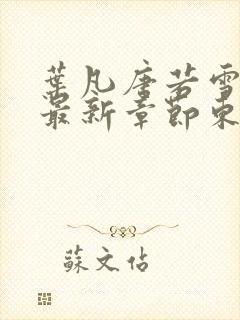 葉凡唐若雪
最新章節東
蘇文估